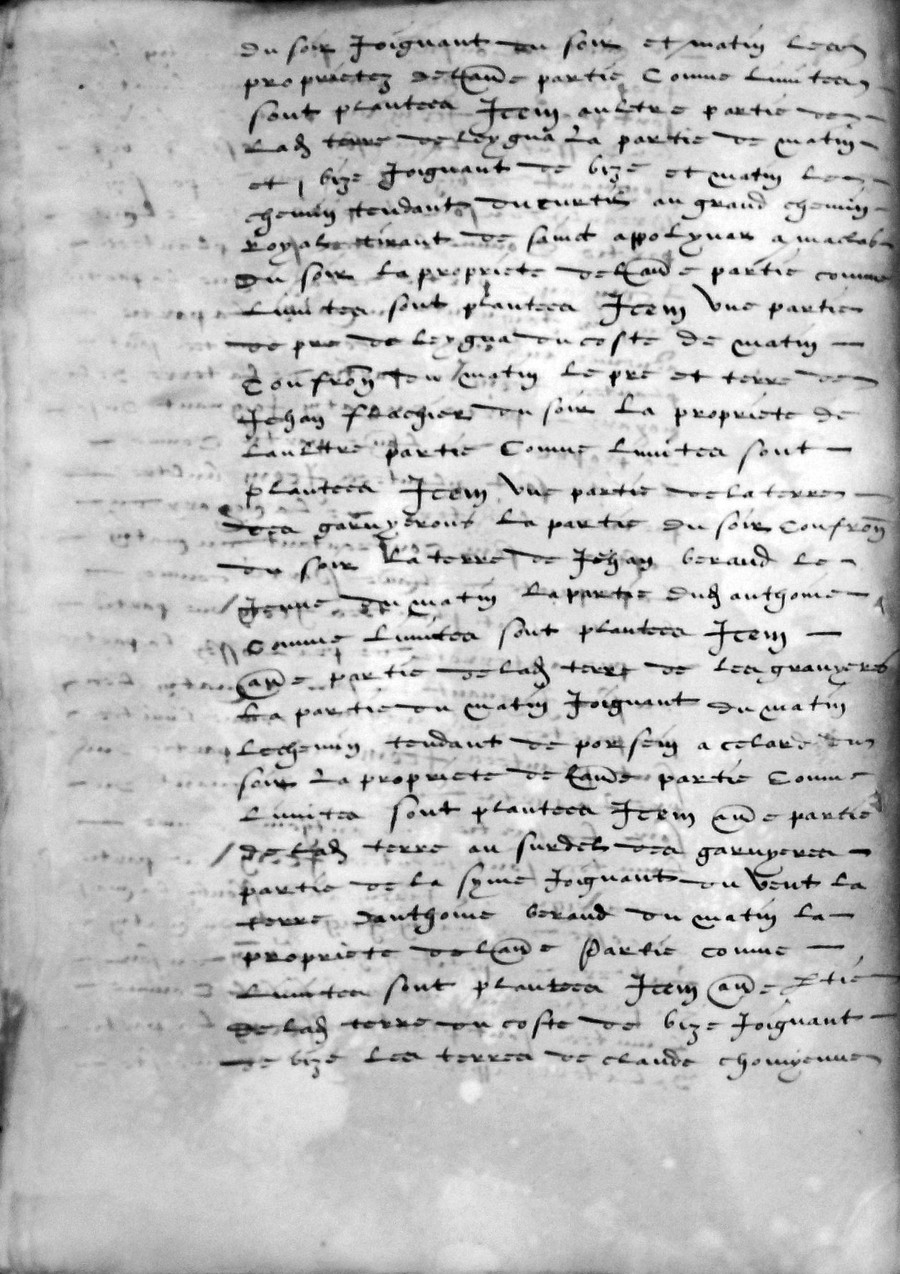 du soir Joignant du soir et matin les
proprietez de lau͠e partie Comme limites
sont plantees Item aultre partie de
lad terre de leygua la partie de matin
et bize Joignant de bize et matin le
chemin tendant du curtil au grand chemin
royal tirant de sainct appolynar a
du soir la propriete de lau͠e partie comme
limites sont plantees Item vne partie
de pre de leygua du coste de matin
Confron du matin le pre et terre de
Jehan flachier du soir la propriete de
laultre partie Comme limites sont
plantees Item vne partie de la terre
des garnyerons la partie du soir Confron
du soir la terre de Jehan beraud le
Jeune du matin la partie dud anthoine
Comme limites sont plantees Item
au͠e partie de lad terre de les granyeres
la partie du matin Joignant du matin
le chemin tendant de porsein a celarde du
soir la propriete de lau͠e partie Comme
limites sont plantees Item au͠e partie
de lad terre au surdel des garnyeres
partie de la syme Joignant du vent la
terre danthoine beraud du matin la
propriete de lau͠e partie comme
limites sont plantees Item au͠e ptie
de lad terre du coste de bize Joignant
de bize les terres de claude